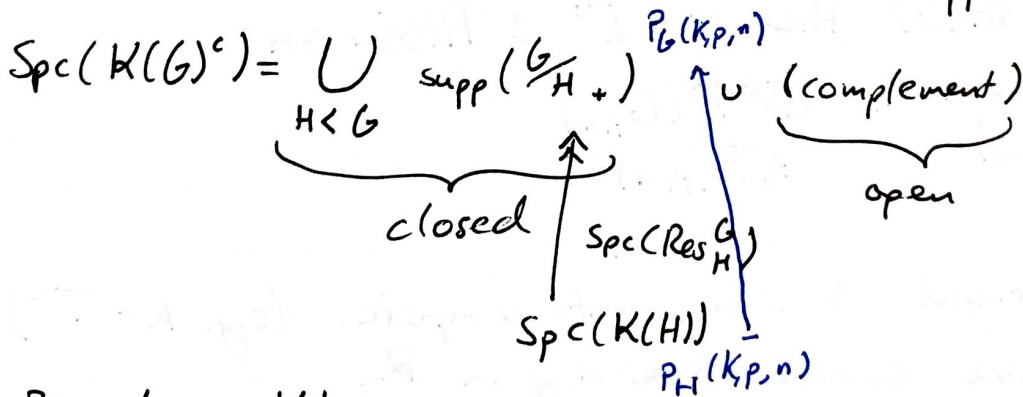 P_G(K,p,n)
Spc(K(G)^c) = ∪_{H<G} supp(G/H +) ∪ (complement)
closed
open
Spc(Res^G_H)
Spc(K(H))
P_H(K,p,n)